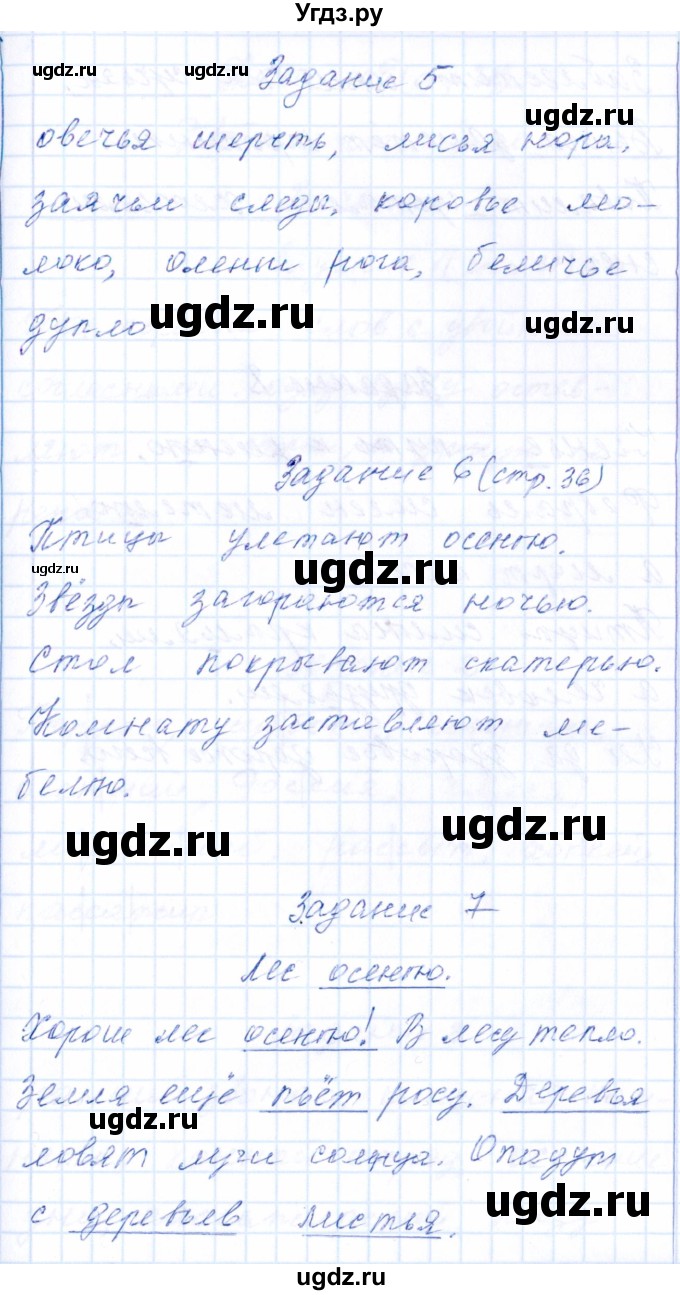 Угдз.ру
ugdz.ru
Задание 5
ugdz.ru
ugdz.ru
овечья шерсть, лисья нора,
заячьи следы, коровье мо-
локо, оленьи рога, беличье
ugdz.ru
ugdz.ru
дупло
Задание 6 (стр. 36)
Птицы улетают осенью.
ugdz.ru
ugdz.ru
Звёзды загораются ночью.
Стол покрывают скатерью.
Комнату заставляют ме-
белью.
ugdz.ru
ugdz.ru
Задание 7
Лес осенью.
Хорош лес осенью! В лесу тепло.
Земля ещё пьёт росу. Деревья
ugdz.ru
ловят лучи солнца. Опадут
ugdz.ru
с деревьев листья.
ugdz.ru